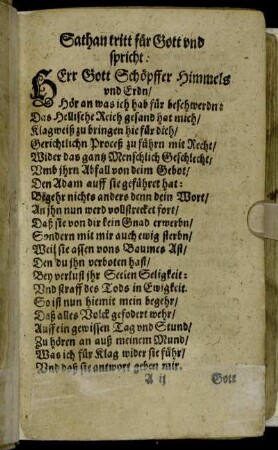 Sathan tritt für Gott vnd
spricht:
HErr Gott Schöpffer Himmels
vnd Erdn/
Hör an was ich hab für beschwerdn:
Das Hellische Reich gesand hat mich/
Klagweiß zu bringen hie für dich/
Gerichtlichn Proceß zu führn mit Recht/
Wider das gantz Menschlich Geschlecht/
Vmb ihrn Abfall von deim Gebot/
Den Adam auff sie geführet hat:
Begehr nichts anders denn dein Wort/
An ihn nun werd vollstrecket fort/
Daß sie von dir kein Gnad erwerbn/
Sondern mit mir auch ewig sterbn/
Weil sie assen vons Baumes Ast/
Den du ihn verboten hast/
Bey verlust ihr Seelen Seligkeit:
Vnd straff des Tods in Ewigkeit.
So ist nun hiemit mein begehr/
Daß alles Volck gefodert wehr/
Auff ein gewissen Tag vnd Stund/
Zu hören an auß meinem Mund/
Was ich für Klag wider sie führ/
Vnd daß sie antwort geben mir.
A ij Gott